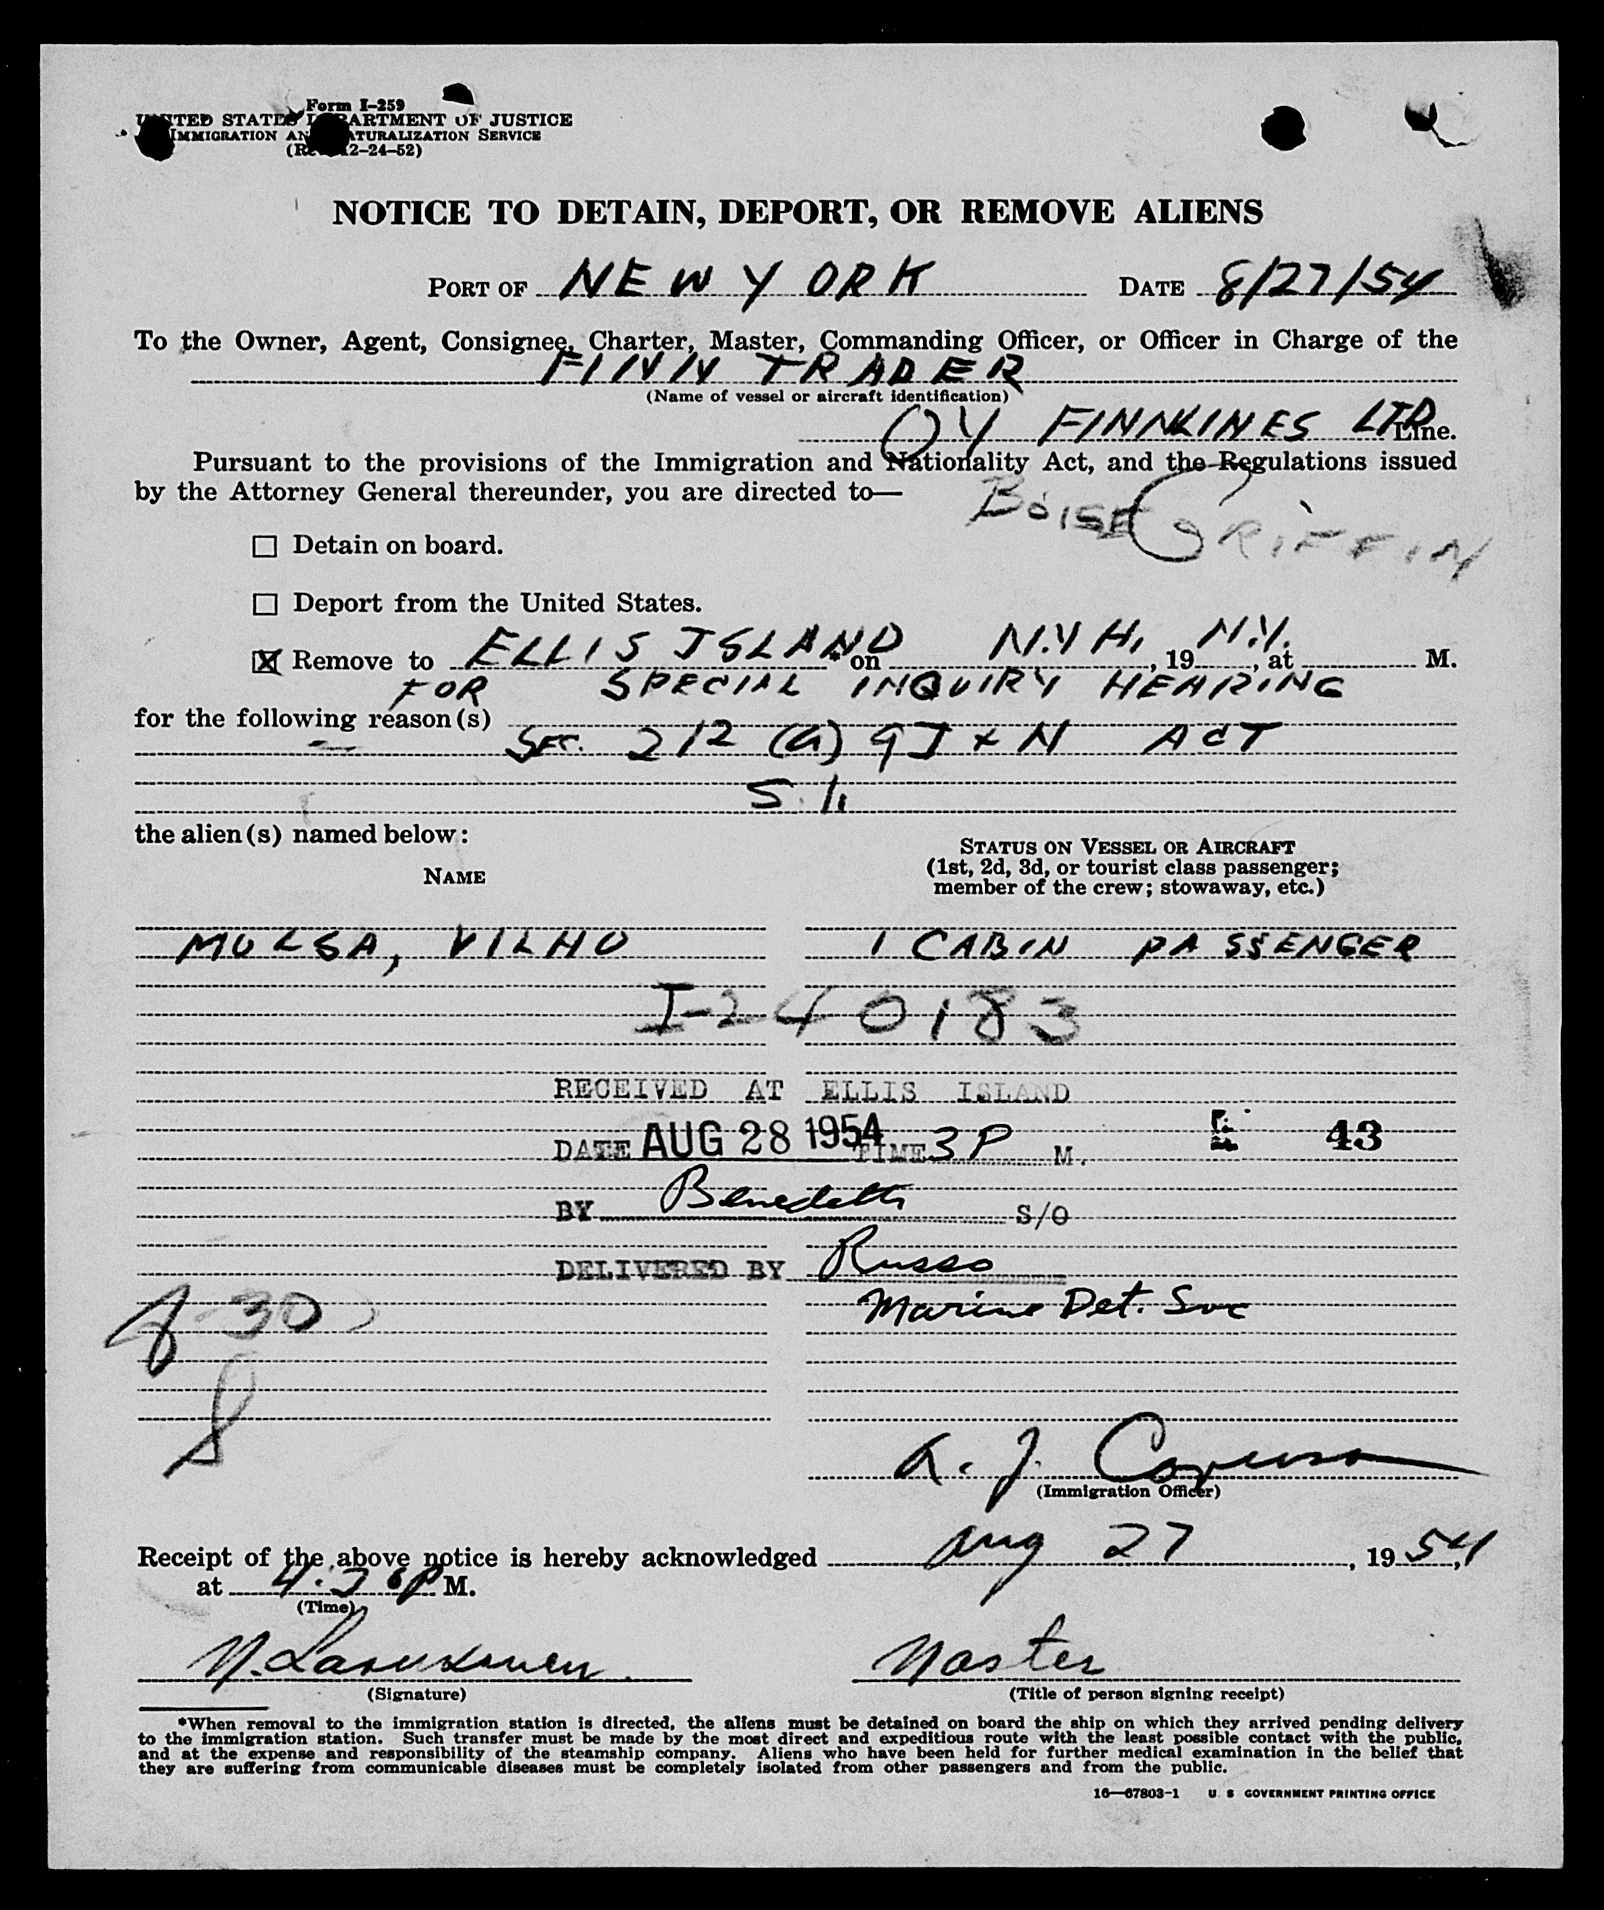 Form I-259
UNITED STATES DEPARTMENT OF JUSTICE
IMMIGRATION AND NATURALIZATION SERVICE
(Rev. 12-24-52)
NOTICE TO DETAIN, DEPORT, OR REMOVE ALIENS
PORT OF NEW YORK DATE 8/27/54
To the Owner, Agent, Consignee, Charter, Master, Commanding Officer, or Officer in Charge of the
FINN TRADER
(Name of vessel or aircraft identification)
OY FINNLINES LTD Line.
Pursuant to the provisions of the Immigration and Nationality Act, and the Regulations issued
by the Attorney General thereunder, you are directed to—
BOISE GRIFFIN
☐ Detain on board.
☐ Deport from the United States.
☒ Remove to ELLIS ISLAND * on N.Y.H., N.Y. , 19 , at M.
FOR SPECIAL INQUIRY HEARING
for the following reason(s)
SEC. 212 (a) 9 I & N ACT
S.I.
the alien(s) named below:
NAME
STATUS ON VESSEL OR AIRCRAFT
(1st, 2d, 3d, or tourist class passenger;
member of the crew; stowaway, etc.)
MULSA, VILHO 1 CABIN PASSENGER
I-240183
RECEIVED AT ELLIS ISLAND
DATE AUG 28 1954 TIME 3 P M. 43
BY Benedetti S/O
DELIVERED BY Russo
Marine Det. Svc
8-30
A. J. Caruso
(Immigration Officer)
Receipt of the above notice is hereby acknowledged Aug 27, 1954,
at P M.
(Time)
Master
(Signature) (Title of person signing receipt)
*When removal to the immigration station is directed, the aliens must be detained on board the ship on which they arrived pending delivery
to the immigration station. Such transfer must be made by the most direct and expeditious route with the least possible contact with the public,
and at the expense and responsibility of the steamship company. Aliens who have been held for further medical examination in the belief that
they are suffering from communicable diseases must be completely isolated from other passengers and from the public.
16—67803-1 U S GOVERNMENT PRINTING OFFICE